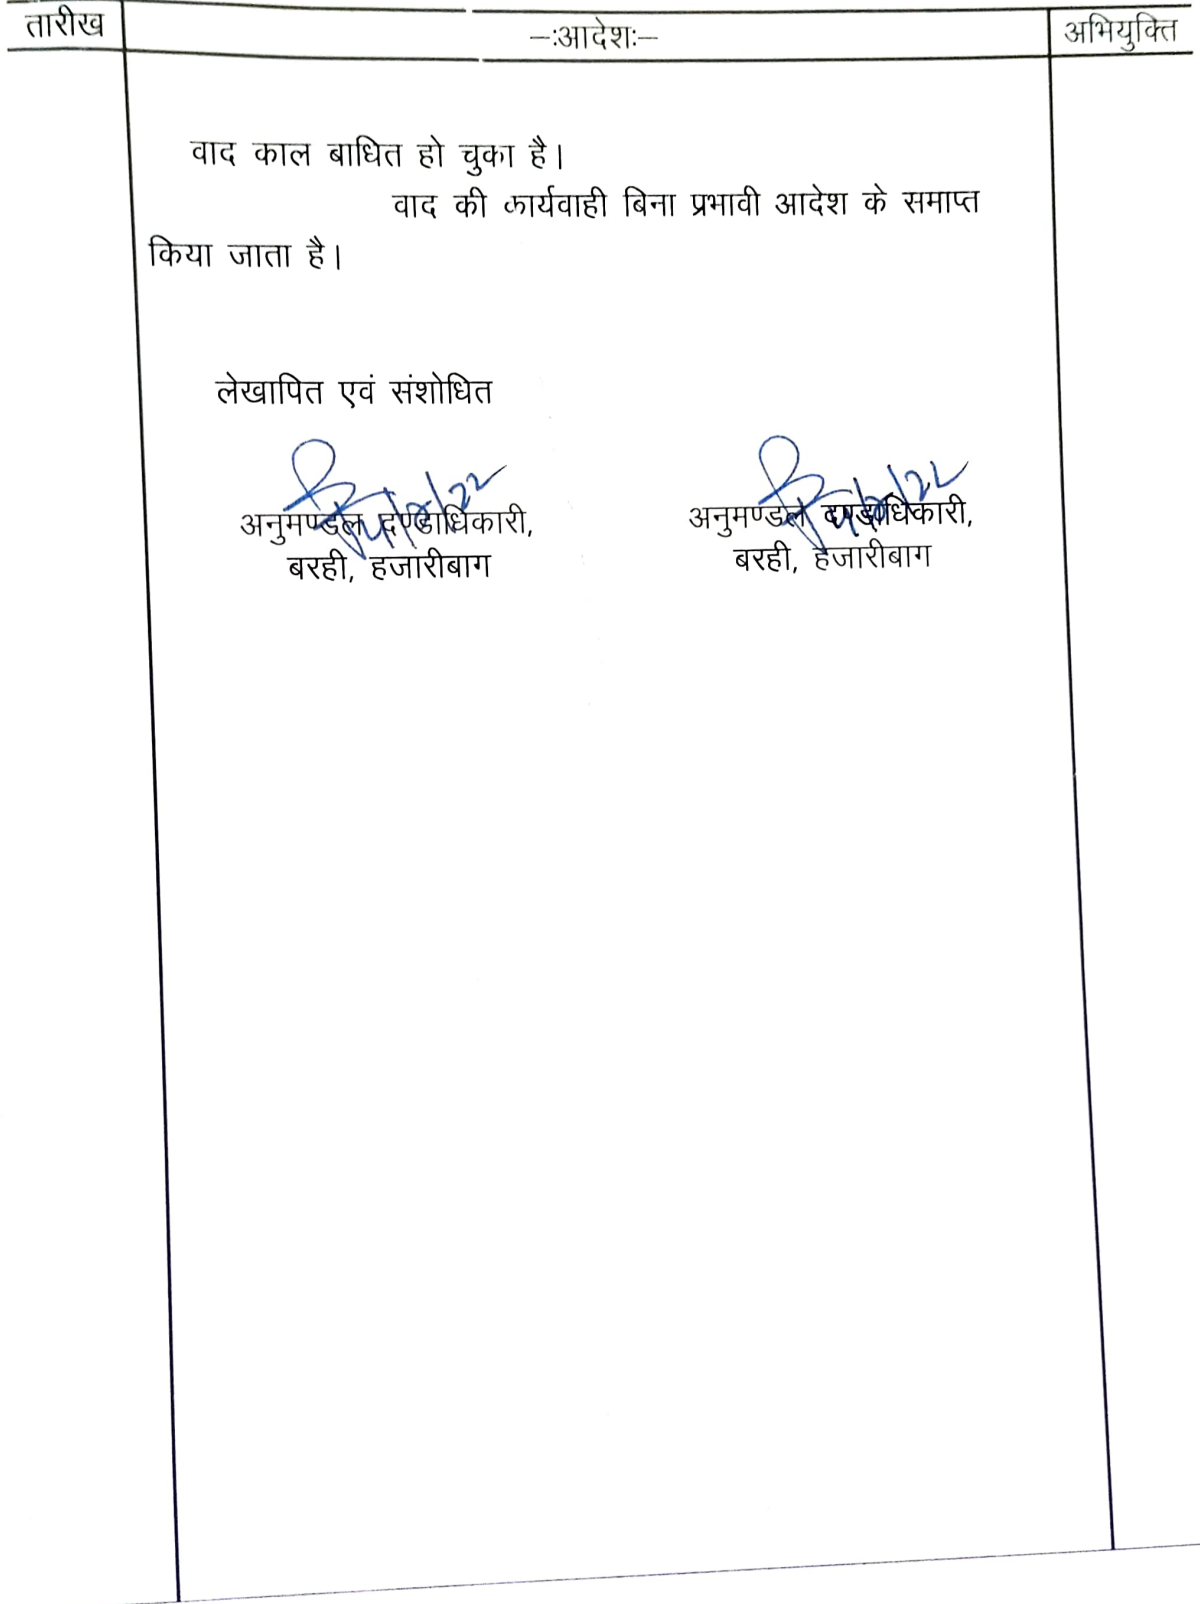 तारीख
–:आदेश:–
अभियुक्ति
वाद काल बाधित हो चुका है।
वाद की कार्यवाही बिना प्रभावी आदेश के समाप्त
किया जाता है।
लेखापित एवं संशोधित
अनुमण्डल दण्डाधिकारी,
बरही, हजारीबाग
अनुमण्डल दण्डाधिकारी,
बरही, हजारीबाग